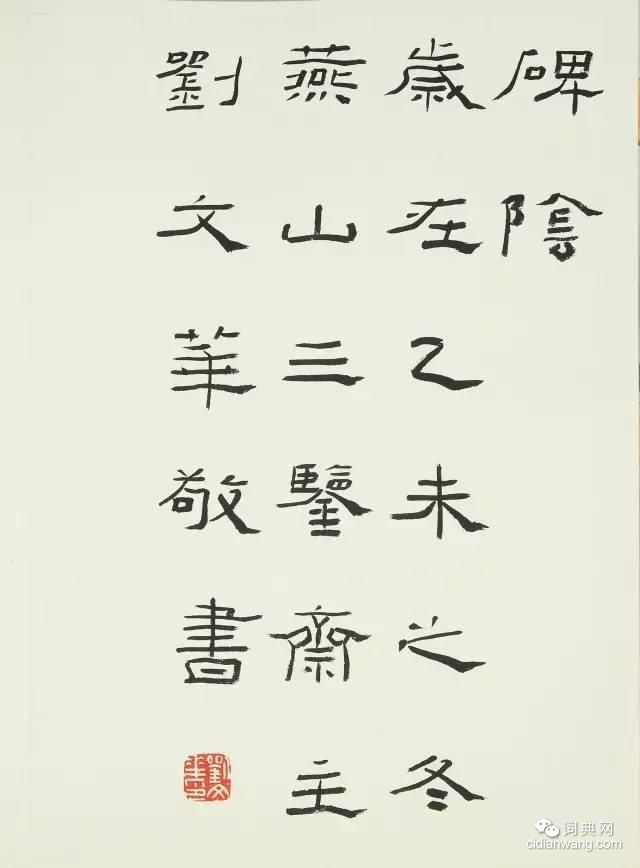 碑陰
歲在乙未之冬
燕山三鑒齋主
劉文華敬書
词典网
cidianwang.com